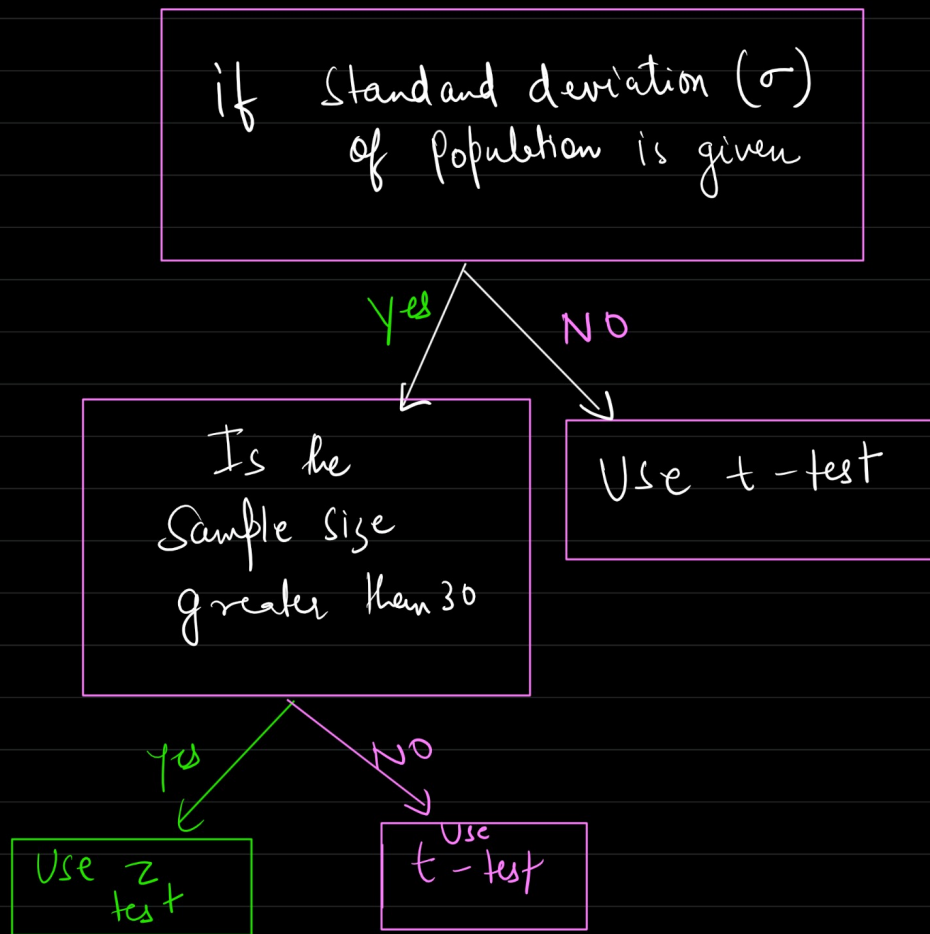 if Standand deviation (σ)
of Population is given
Yes
NO
Is he
Sample Size
greater than 30
Use t-test
Yes
NO
Use z
test
Use
t-test